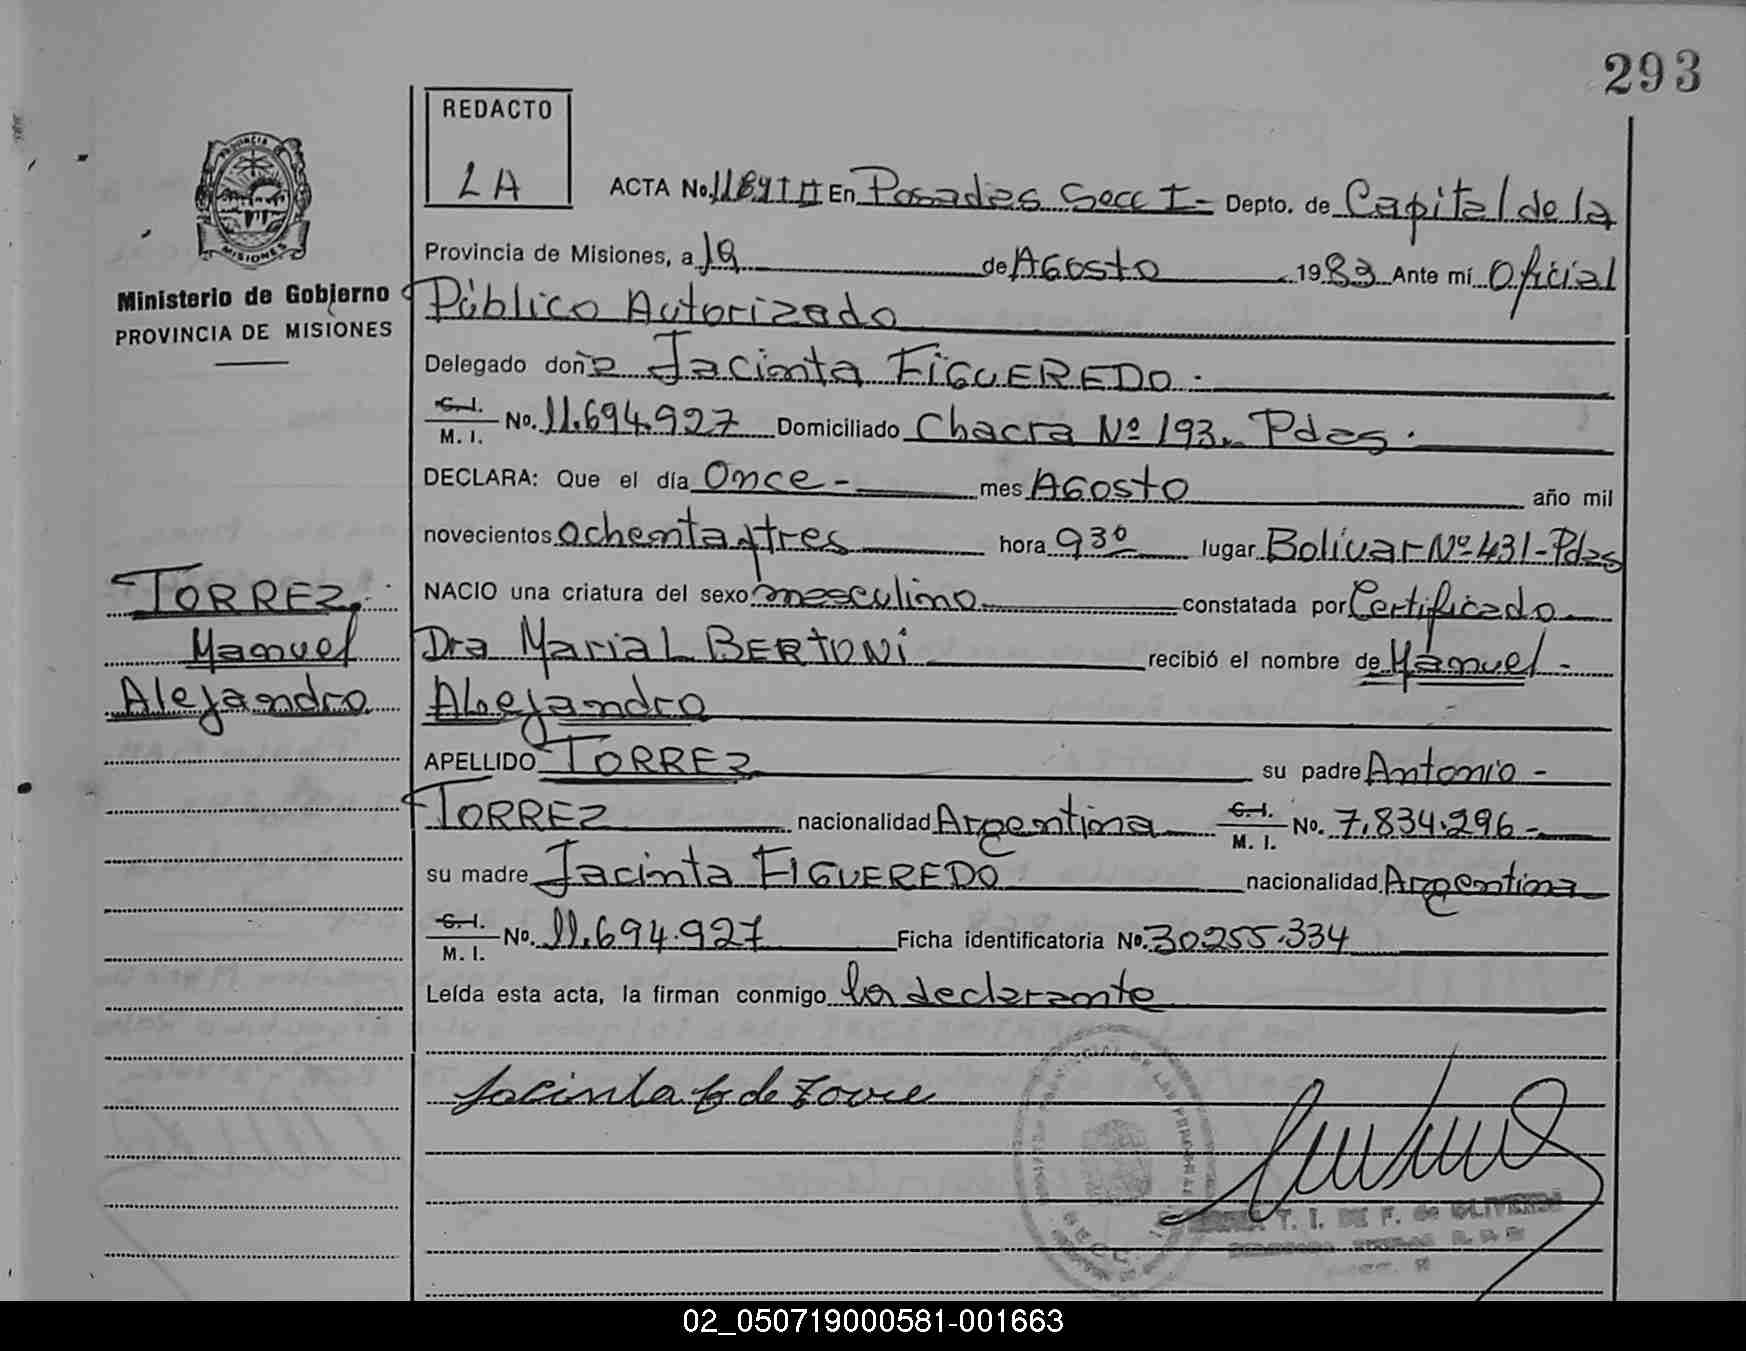 293
REDACTO
LA
PROVINCIA DE
MISIONES
Ministerio de Gobierno
PROVINCIA DE MISIONES
ACTA No. En Posadas Secc I - Depto. de Capital de la
Provincia de Misiones, a 19 de Agosto 1983 Ante mí Oficial
Público Autorizado
Delegado doña Jacinta FIGUEREDO.
C. I.
M. I. No. 11.694.927 Domiciliado Chacra Nº 193. Pdas.
DECLARA: Que el día Once - mes Agosto año mil
novecientos ochenta y tres hora 930 lugar Bolívar Nº 431 - Pdas
NACIO una criatura del sexo masculino constatada por Certificado
Dra Maria L BERTONI recibió el nombre de Manuel -
Alejandro
APELLIDO TORREZ su padre Antonio -
TORREZ nacionalidad Argentina C. I.
M. I. No. 7.834.296 -
su madre Jacinta FIGUEREDO nacionalidad Argentina
C. I.
M. I. No. 11.694.927 Ficha identificatoria Nº. 30255.334
Leída esta acta, la firman conmigo la declarante
TORREZ,
Manuel
Alejandro
Jacinta F de Torre
T. I. DE F. de OLIVEIRA
02_050719000581-001663